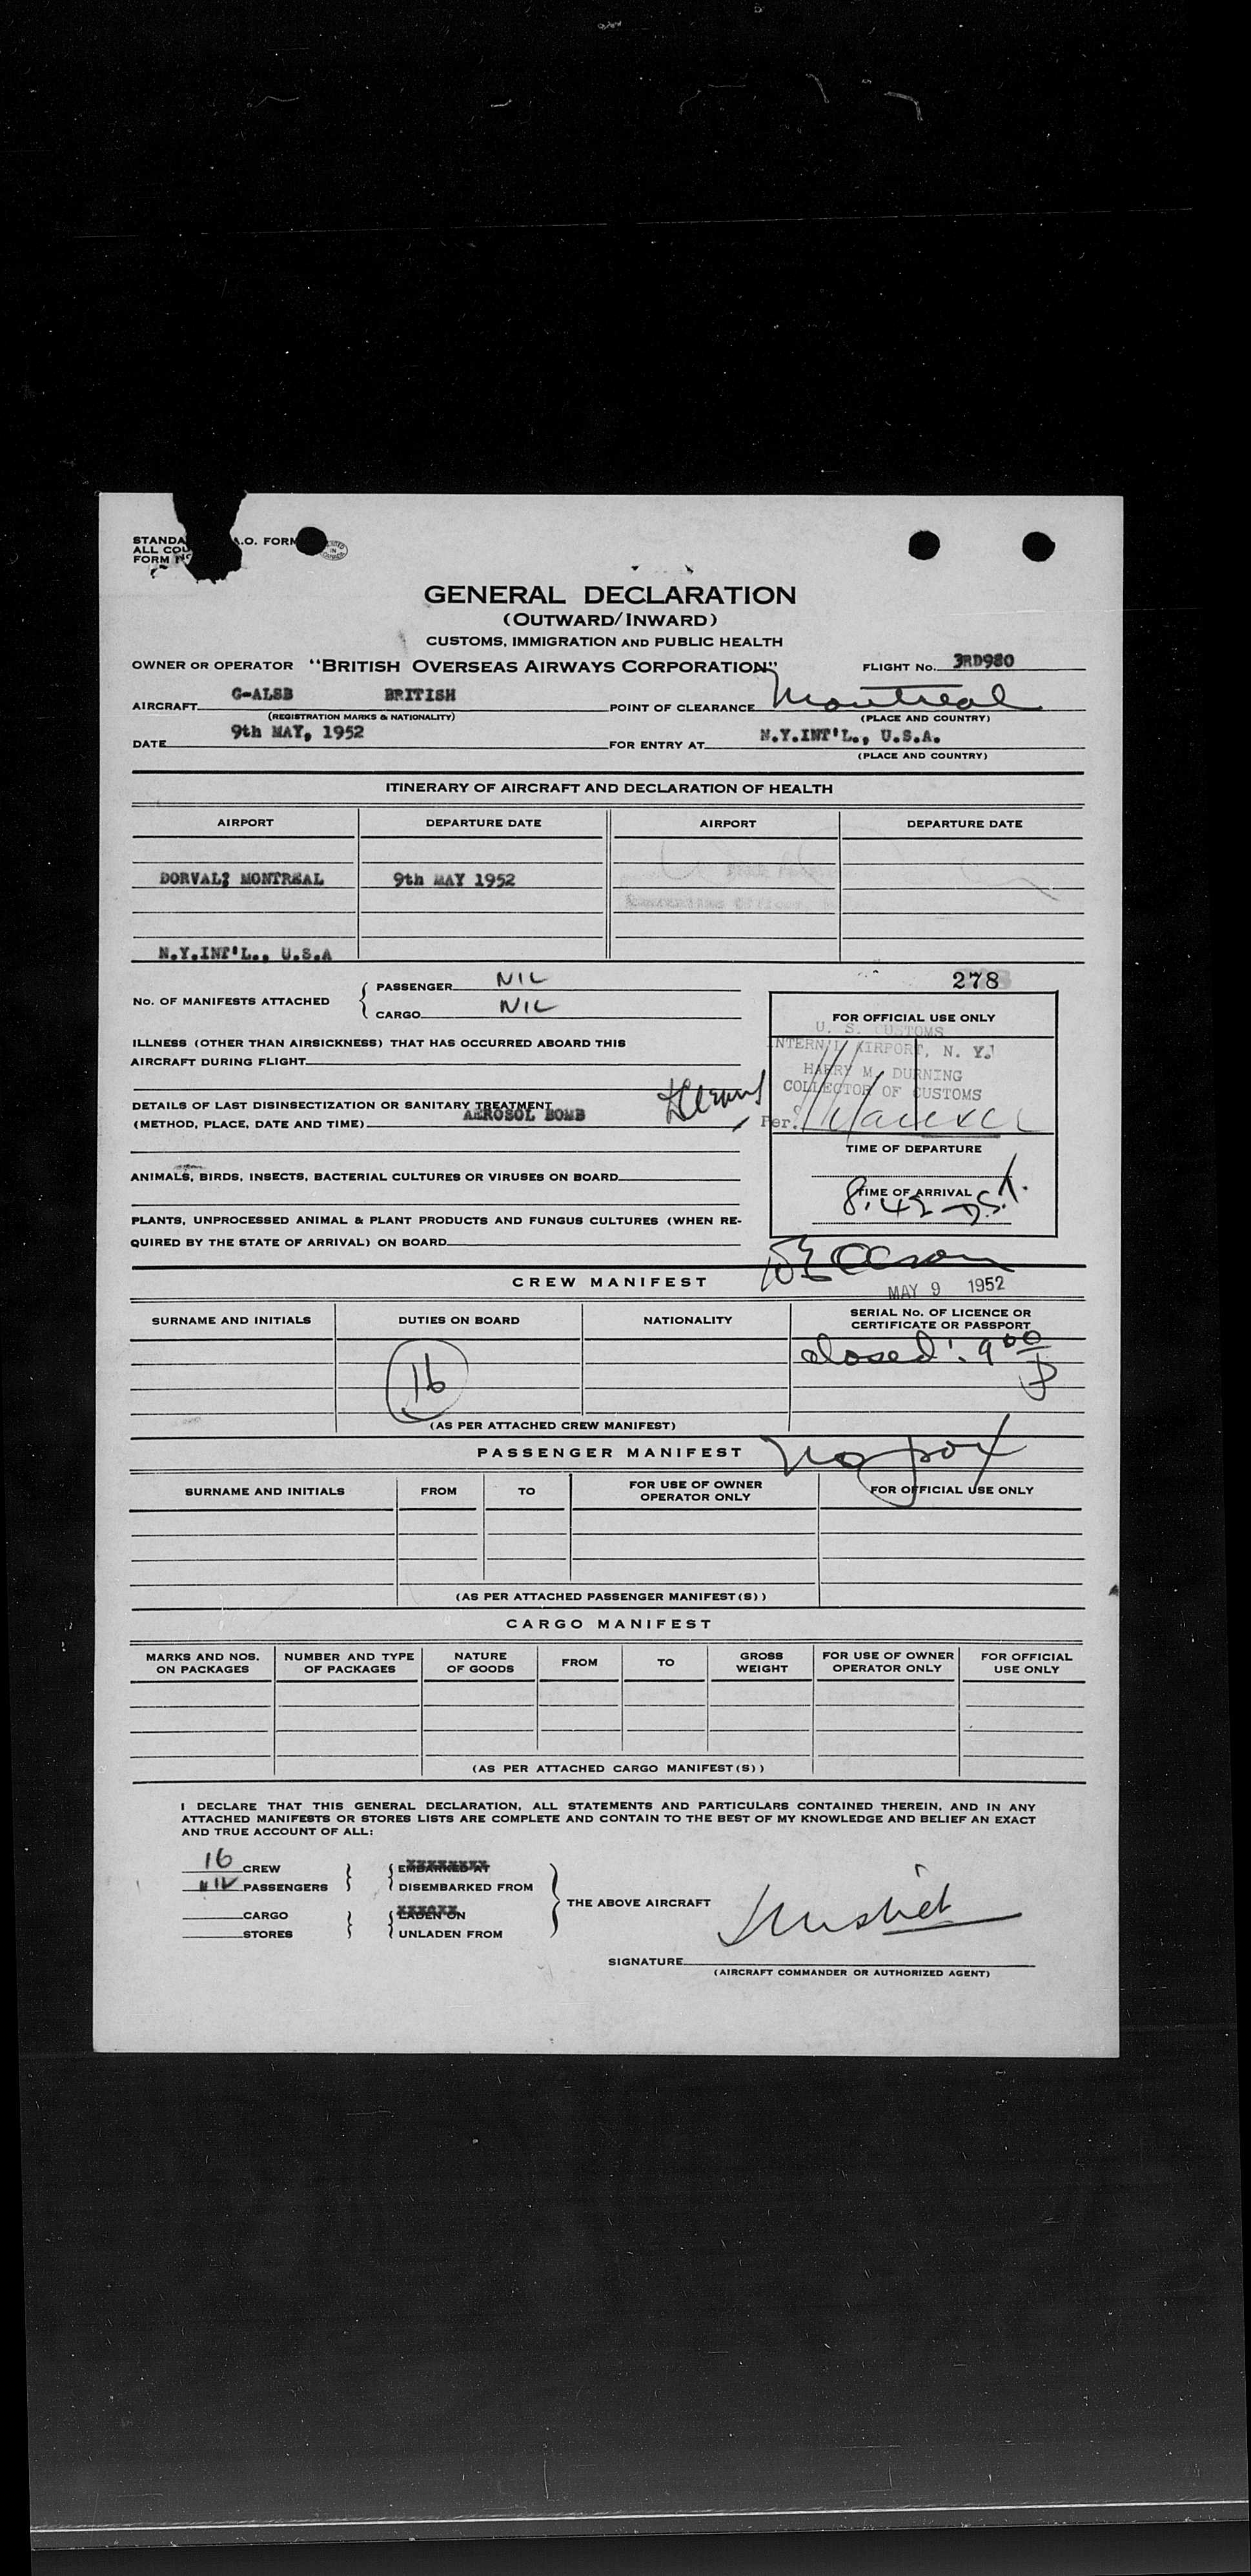 STANDA
.O. FORM
ALL COU
FORM No
GENERAL DECLARATION
(OUTWARD/INWARD)
CUSTOMS, IMMIGRATION AND PUBLIC HEALTH
OWNER OR OPERATOR "BRITISH OVERSEAS AIRWAYS CORPORATION" FLIGHT No. 3RD980
AIRCRAFT G-ALSB BRITISH POINT OF CLEARANCE Montreal
(REGISTRATION MARKS & NATIONALITY) (PLACE AND COUNTRY)
DATE 9th MAY, 1952 FOR ENTRY AT N.Y.INT'L., U.S.A.
(PLACE AND COUNTRY)
ITINERARY OF AIRCRAFT AND DECLARATION OF HEALTH
AIRPORT DEPARTURE DATE AIRPORT DEPARTURE DATE
DORVAL; MONTREAL 9th MAY 1952
N.Y.INT'L., U.S.A
278
No. OF MANIFESTS ATTACHED { PASSENGER NIL
CARGO NIL
FOR OFFICIAL USE ONLY
U. S. CUSTOMS
INTERN'L AIRPORT, N. Y.
HARRY M. DURNING
COLLECTOR OF CUSTOMS
Per.
ILLNESS (OTHER THAN AIRSICKNESS) THAT HAS OCCURRED ABOARD THIS
AIRCRAFT DURING FLIGHT
DETAILS OF LAST DISINSECTIZATION OR SANITARY TREATMENT
(METHOD, PLACE, DATE AND TIME) AEROSOL BOMB
TIME OF DEPARTURE
ANIMALS, BIRDS, INSECTS, BACTERIAL CULTURES OR VIRUSES ON BOARD
TIME OF ARRIVAL
8.42
PLANTS, UNPROCESSED ANIMAL & PLANT PRODUCTS AND FUNGUS CULTURES (WHEN RE-
QUIRED BY THE STATE OF ARRIVAL) ON BOARD
CREW MANIFEST
MAY 9 1952
SURNAME AND INITIALS DUTIES ON BOARD NATIONALITY SERIAL No. OF LICENCE OR
CERTIFICATE OR PASSPORT
closed: 9 00 P
16
(AS PER ATTACHED CREW MANIFEST)
PASSENGER MANIFEST No pax
SURNAME AND INITIALS FROM TO FOR USE OF OWNER
OPERATOR ONLY FOR OFFICIAL USE ONLY
(AS PER ATTACHED PASSENGER MANIFEST(S))
CARGO MANIFEST
MARKS AND NOS.
ON PACKAGES NUMBER AND TYPE
OF PACKAGES NATURE
OF GOODS FROM TO GROSS
WEIGHT FOR USE OF OWNER
OPERATOR ONLY FOR OFFICIAL
USE ONLY
(AS PER ATTACHED CARGO MANIFEST(S))
I DECLARE THAT THIS GENERAL DECLARATION, ALL STATEMENTS AND PARTICULARS CONTAINED THEREIN, AND IN ANY
ATTACHED MANIFESTS OR STORES LISTS ARE COMPLETE AND CONTAIN TO THE BEST OF MY KNOWLEDGE AND BELIEF AN EXACT
AND TRUE ACCOUNT OF ALL:
16 CREW EMBARKED AT
NIL PASSENGERS DISEMBARKED FROM
THE ABOVE AIRCRAFT
CARGO LADEN ON
STORES UNLADEN FROM
SIGNATURE
(AIRCRAFT COMMANDER OR AUTHORIZED AGENT)